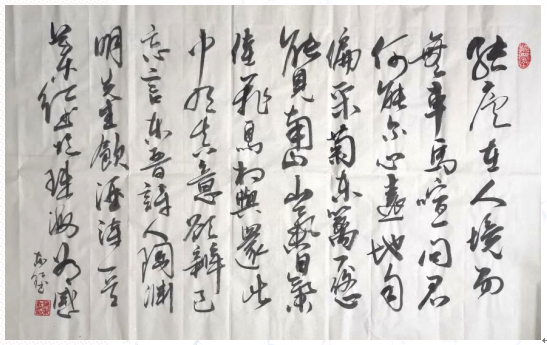 結廬在人境而
無車馬喧問君
何能爾心遠地自
偏采菊東籬下悠
然見南山山氣日夕
佳飛鳥相與還此
中有真意欲辯已
忘言東晉詩人陶淵
明先生飲酒詩一首
於珠海